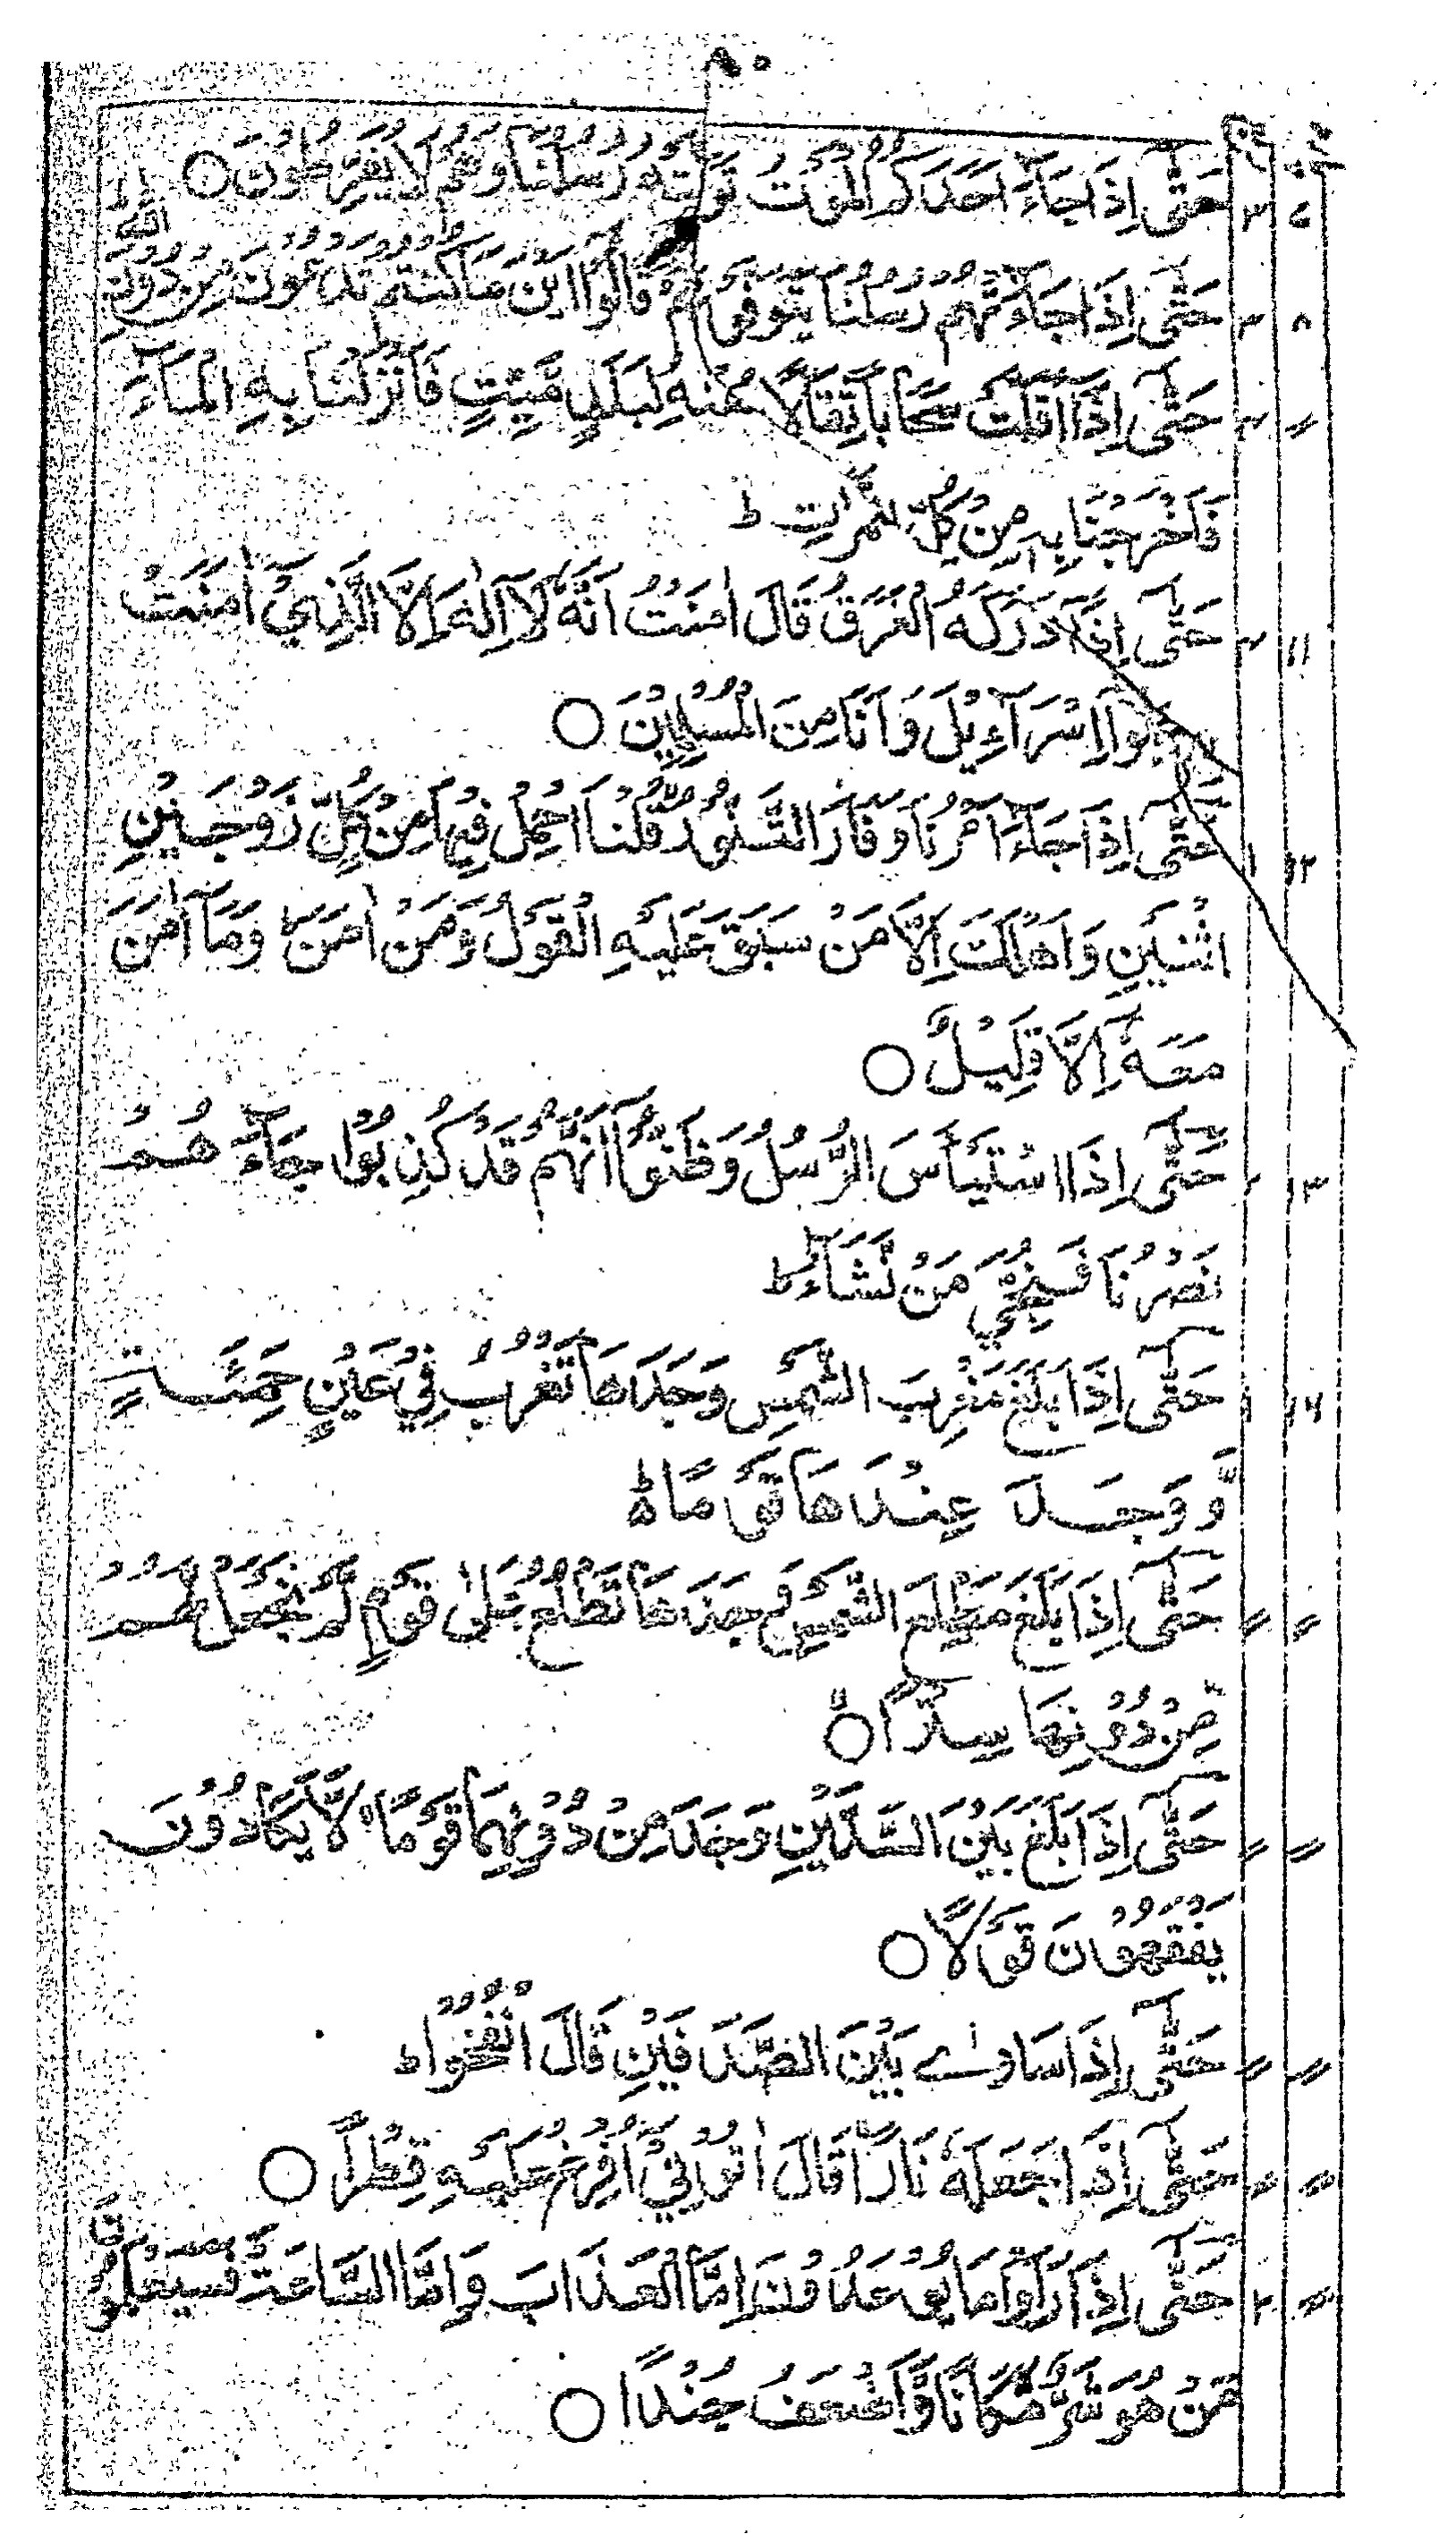 ۸۰
۷ ۲ حَتّٰٓى اِذَا جَآءَ اَحَدَكُمُ الْمَوْتُ تَوَفَّتْهُ رُسُلُنَا وَهُمْ لَا يُفَرِّطُوْنَ ○
۸ ۲ حَتّٰٓى اِذَا جَآءَتْهُمْ رُسُلُنَا يَتَوَفَّوْنَهُمْ قَالُوْٓا اَيْنَ مَا كُنْتُمْ تَدْعُوْنَ مِنْ دُوْنِ اللّٰهِ ط
〃 ۲ حَتّٰٓى اِذَآ اَقَلَّتْ سَحَابًا ثِقَالًا سُقْنٰهُ لِبَلَدٍ مَّيِّتٍ فَاَنْزَلْنَا بِهِ الْمَآءَ
فَاَخْرَجْنَا بِهٖ مِنْ كُلِّ الثَّمَرٰتِ ط
۱۱ ۲ حَتّٰٓى اِذَآ اَدْرَكَهُ الْغَرَقُ قَالَ اٰمَنْتُ اَنَّهٗ لَآ اِلٰهَ اِلَّا الَّذِيْٓ اٰمَنَتْ
بِهٖ بَنُوْٓا اِسْرَآءِيْلَ وَاَنَا مِنَ الْمُسْلِمِيْنَ ○
۱۲ ۱ حَتّٰٓى اِذَا جَآءَ اَمْرُنَا وَفَارَ التَّنُّوْرُ قُلْنَا احْمِلْ فِيْهَا مِنْ كُلٍّ زَوْجَيْنِ
اثْنَيْنِ وَاَهْلَكَ اِلَّا مَنْ سَبَقَ عَلَيْهِ الْقَوْلُ وَمَنْ اٰمَنَ ط وَمَآ اٰمَنَ
مَعَهٗٓ اِلَّا قَلِيْلٌ ○
۱۳ حَتّٰٓى اِذَا اسْتَيْـَٔسَ الرُّسُلُ وَظَنُّوْٓا اَنَّهُمْ قَدْ كُذِبُوْا جَآءَهُمْ
نَصْرُنَا فَنُجِّيَ مَنْ نَّشَآءُ ط
۱۶ ۱ حَتّٰٓى اِذَا بَلَغَ مَغْرِبَ الشَّمْسِ وَجَدَهَا تَغْرُبُ فِيْ عَيْنٍ حَمِئَةٍ
وَّوَجَدَ عِنْدَهَا قَوْمًا ۵ط
〃 〃 حَتّٰٓى اِذَا بَلَغَ مَطْلِعَ الشَّمْسِ وَجَدَهَا تَطْلُعُ عَلٰى قَوْمٍ لَّمْ نَجْعَلْ لَّهُمْ
مِّنْ دُوْنِهَا سِتْرًا ○
〃 〃 حَتّٰٓى اِذَا بَلَغَ بَيْنَ السَّدَّيْنِ وَجَدَ مِنْ دُوْنِهِمَا قَوْمًا لَّا يَكَادُوْنَ
يَفْقَهُوْنَ قَوْلًا ○
〃 〃 حَتّٰٓى اِذَا سَاوٰى بَيْنَ الصَّدَفَيْنِ قَالَ انْفُخُوْا ط
〃 〃 حَتّٰٓى اِذَا جَعَلَهٗ نَارًا قَالَ اٰتُوْنِيْٓ اُفْرِغْ عَلَيْهِ قِطْرًا ○
〃 ۲ حَتّٰٓى اِذَا رَاَوْا مَا يُوْعَدُوْنَ اِمَّا الْعَذَابَ وَاِمَّا السَّاعَةَ فَسَيَعْلَمُوْنَ
مَنْ هُوَ شَرٌّ مَّكَانًا وَّاَضْعَفُ جُنْدًا ○